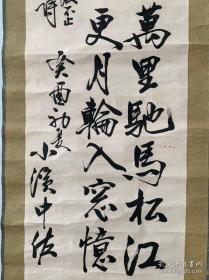 萬里馳馬松江
更月輪入窓憶
癸酉初夏
小濱中佐